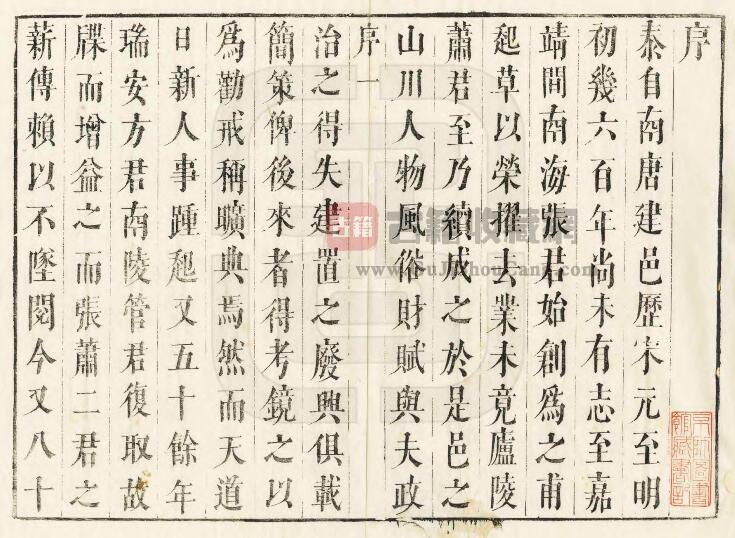 序
泰自南唐建邑歷宋元至明
初幾六百年尚未有志至嘉
靖間南海張君始創為之甫
起草以榮擢去業未竟廬陵
蕭君至乃續成之於是邑之
山川人物風俗財賦與夫政
序 一
治之得失建置之廢興俱載
簡策俾後來者得考鏡之以
為勸戒稱曠典焉然而天道
日新人事踵起又五十餘年
瑞安方君南陵管君復取故
牒而增益之而張蕭二君之
薪傳賴以不墜閱今又八十
古籍
古籍收藏網